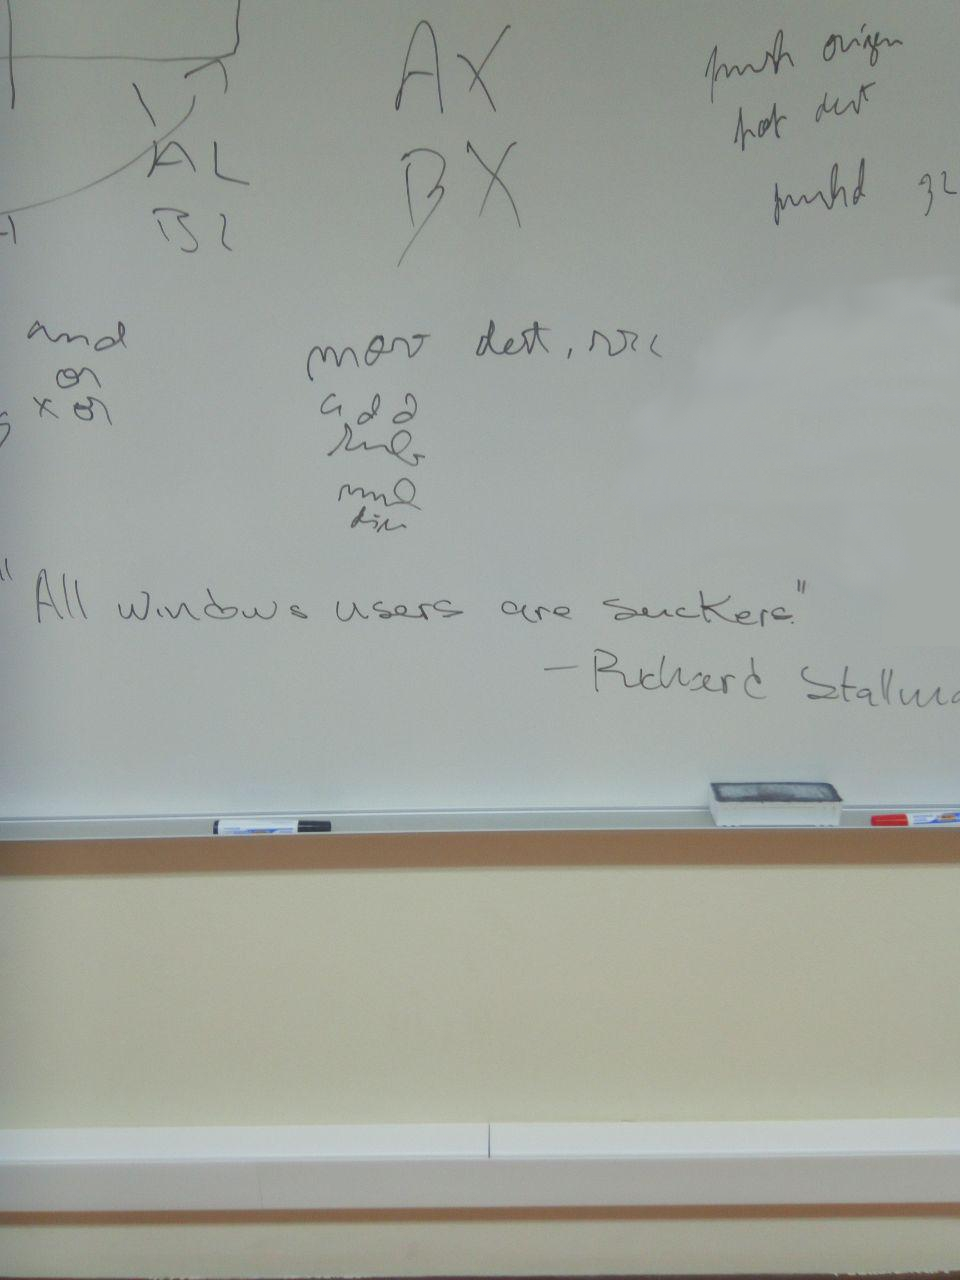 AX
BX
AL
BL
push origen
pop dest
pushd 32
and
or
xor
mov dest, src
add
sub
mul
div
"All windows users are suckers."
- Richard Stallma